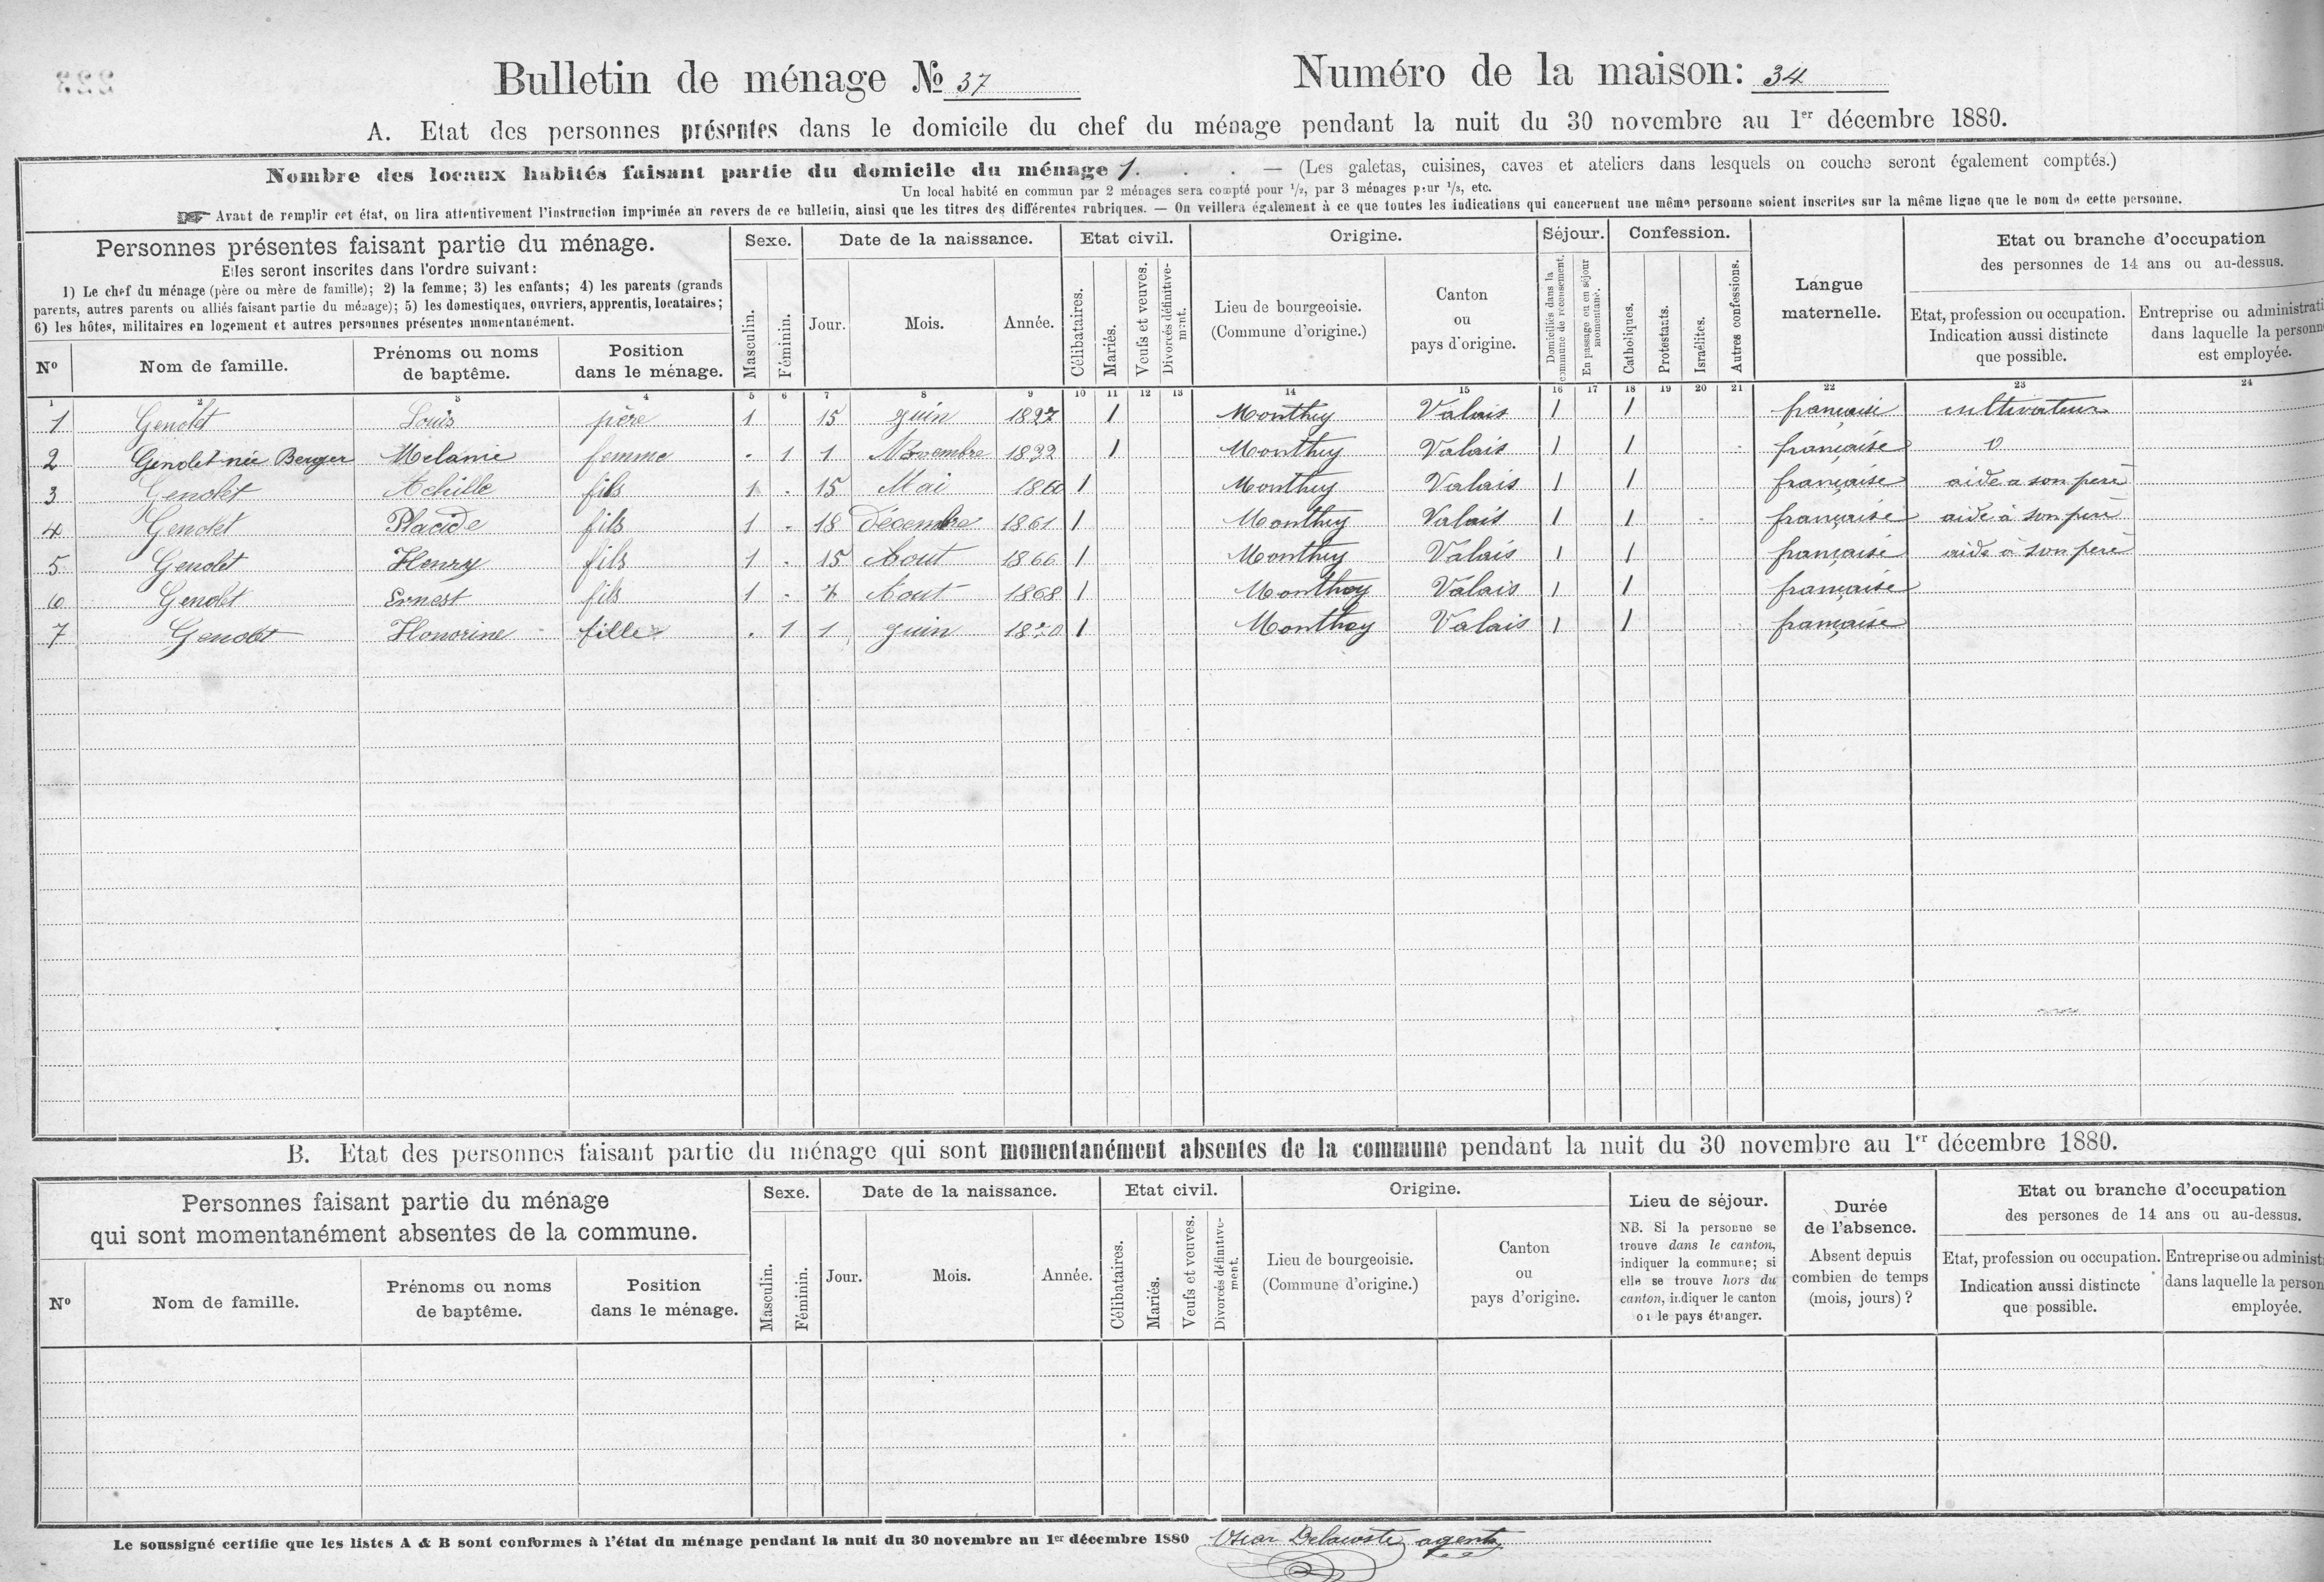 Bulletin de ménage No 37 Numéro de la maison: 34
A. Etat des personnes présentes dans le domicile du chef du ménage pendant la nuit du 30 novembre au 1er décembre 1880.
Nombre des locaux habités faisant partie du domicile du ménage 1. . . — (Les galetas, cuisines, caves et ateliers dans lesquels on couche seront également comptés.)
Un local habité en commun par 2 ménages sera compté pour 1/2, par 3 ménages pour 1/3, etc.
☞ Avant de remplir cet état, on lira attentivement l'instruction imprimée au revers de ce bulletin, ainsi que les titres des différentes rubriques. — On veillera également à ce que toutes les indications qui concernent une même personne soient inscrites sur la même ligne que le nom de cette personne.
Personnes présentes faisant partie du ménage.
Elles seront inscrites dans l'ordre suivant:
1) Le chef du ménage (père ou mère de famille); 2) la femme; 3) les enfants; 4) les parents (grands
parents, autres parents ou alliés faisant partie du ménage); 5) les domestiques, ouvriers, apprentis, locataires;
6) les hôtes, militaires en logement et autres personnes présentes momentanément.
No
Nom de famille.
Prénoms ou noms
de baptême.
Position
dans le ménage.
Sexe.
Masculin.
Féminin.
Date de la naissance.
Jour.
Mois.
Année.
Etat civil.
Célibataires.
Mariés.
Veufs et veuves.
Divorcés définitive-
ment.
Origine.
Lieu de bourgeoisie.
(Commune d'origine.)
Canton
ou
pays d'origine.
Séjour.
Domiciliés dans la
commune de recensement.
En passage ou en séjour
momentané.
Confession.
Catholiques.
Protestants.
Israélites.
Autres confessions.
Langue
maternelle.
Etat ou branche d'occupation
des personnes de 14 ans ou au-dessus.
Etat, profession ou occupation.
Indication aussi distincte
que possible.
Entreprise ou administrati
dans laquelle la personn
est employée.
1 2 3 4 5 6 7 8 9 10 11 12 13 14 15 16 17 18 19 20 21 22 23 24
1 Genolet Louis père 1 15 Juin 1827 1 Monthey Valais 1 1 française cultivateur
2 Genolet née Berger Melanie femme 1 1 Novembre 1832 1 Monthey Valais 1 1 française 0
3 Genolet Achille fils 1 15 Mai 1860 1 Monthey Valais 1 1 française aide a son père
4 Genolet Placide fils 1 18 décembre 1861 1 Monthey Valais 1 1 française aide à son père
5 Genolet Henry fils 1 15 Aout 1866 1 Monthey Valais 1 1 française aide à son père
6 Genolet Ernest fils 1 Aout 1868 1 Monthey Valais 1 1 française
7 Genolet Honorine fille 1 1 Juin 1870 1 Monthey Valais 1 1 française
B. Etat des personnes faisant partie du ménage qui sont momentanément absentes de la commune pendant la nuit du 30 novembre au 1er décembre 1880.
Personnes faisant partie du ménage
qui sont momentanément absentes de la commune.
No
Nom de famille.
Prénoms ou noms
de baptême.
Position
dans le ménage.
Sexe.
Masculin.
Féminin.
Date de la naissance.
Jour.
Mois.
Année.
Etat civil.
Célibataires.
Mariés.
Veufs et veuves.
Divorcés définitive-
ment.
Origine.
Lieu de bourgeoisie.
(Commune d'origine.)
Canton
ou
pays d'origine.
Lieu de séjour.
NB. Si la personne se
trouve dans le canton,
indiquer la commune; si
elle se trouve hors du
canton, indiquer le canton
ou le pays étranger.
Durée
de l'absence.
Absent depuis
combien de temps
(mois, jours)?
Etat ou branche d'occupation
des persones de 14 ans ou au-dessus.
Etat, profession ou occupation.
Indication aussi distincte
que possible.
Entreprise ou administ
dans laquelle la person
employée.
Le soussigné certifie que les listes A & B sont conformes à l'état du ménage pendant la nuit du 30 novembre au 1er décembre 1880 Oscar Delacoste, agent